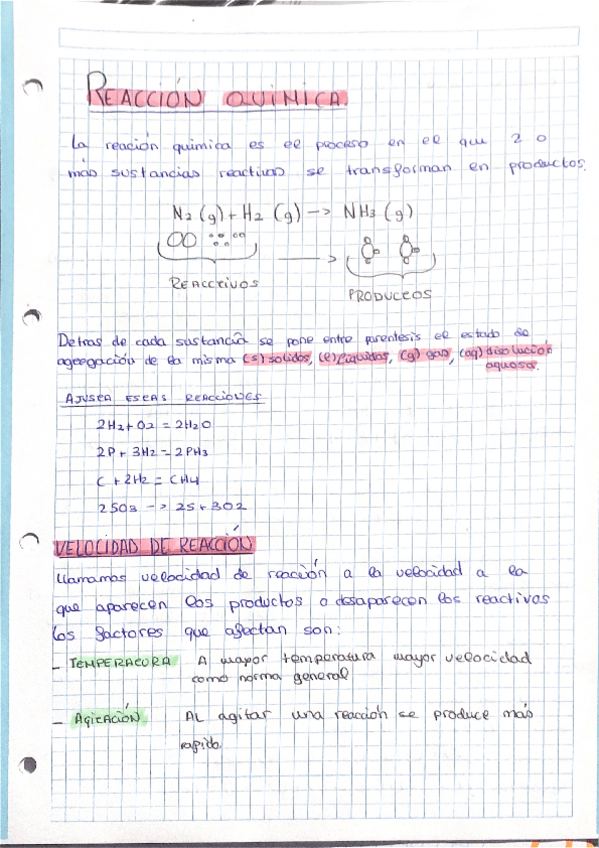 REACCIÓN QUIMICA.
la reación quimica es el proceso en el que 2 o
más sustancias reactivas se transforman en productos.
N2 (g) + H2 (g) -> NH3 (g)
REACTIVOS
PRODUCTOS
Detras de cada sustancia se pone entre parentesis el estado de
agregación de la misma (s) solidos, (l) liquidos, (g) gas, (aq) disolución
aquosa.
AJUSTA ESTAS REACCIONES
2H2 + O2 = 2H2O
2P + 3H2 = 2PH3
C + 2H2 = CH4
2SO3 -> 2S + 3O2
VELOCIDAD DE REACCIÓN
Llamamos velocidad de reacción a la velocidad a la
que aparecen los productos o desaparecen los reactivos
los factores que afectan son:
- TEMPERATURA A mayor temperatura mayor velocidad
como norma general
- AGITACIÓN AL agitar una reacción se produce más
rapido.